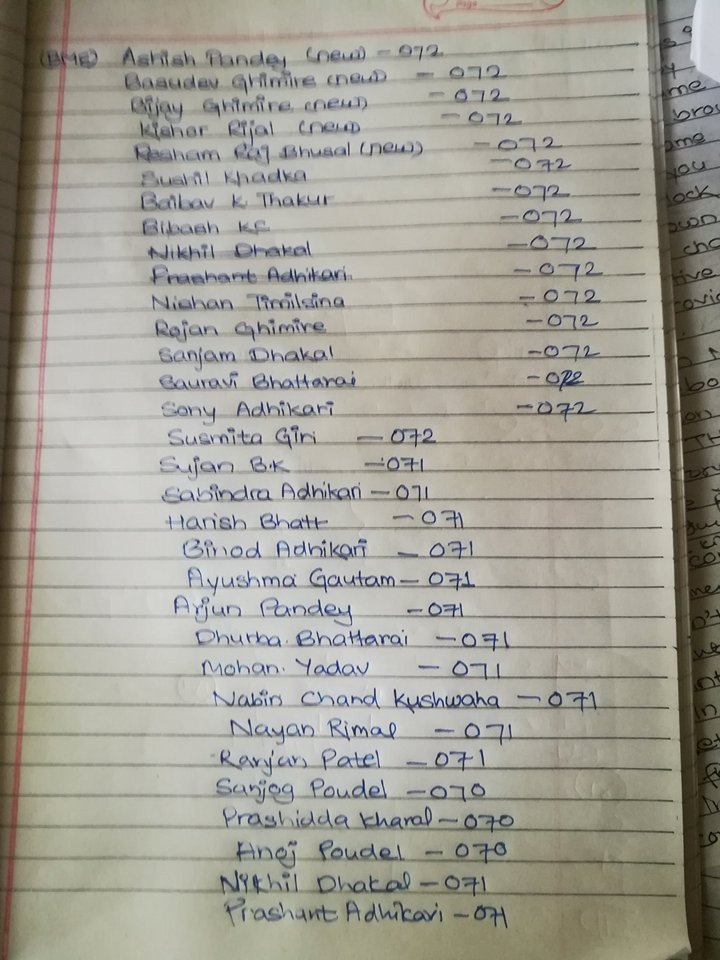 Page
(BME) Ashish Pandey (new) - 072
Basudev Ghimire (new) - 072
Bijay Ghimire (new) - 072
Kishor Rijal (new) - 072
Resham Raj Bhusal (new) - 072
Sushil Khadka - 072
Baibav K Thakur - 072
Bibash KC - 072
Nikhil Dhakal - 072
Prashant Adhikari - 072
Nishan Timilsina - 072
Rajan Ghimire - 072
Sanjam Dhakal - 072
Sauravi Bhattarai - 072
Sony Adhikari - 072
Susmita Giri - 072
Sujan B.K - 071
Sabindra Adhikari - 071
Harish Bhatt - 071
Binod Adhikari - 071
Ayushma Gautam - 071
Arjun Pandey - 071
Dhurba Bhattarai - 071
Mohan Yadav - 071
Nabin Chand Kushwaha - 071
Nayan Rimal - 071
Ranjan Patel - 071
Sanjog Poudel - 070
Prashidda Kharal - 070
Anoj Poudel - 070
Nikhil Dhakal - 071
Prashant Adhikari - 071